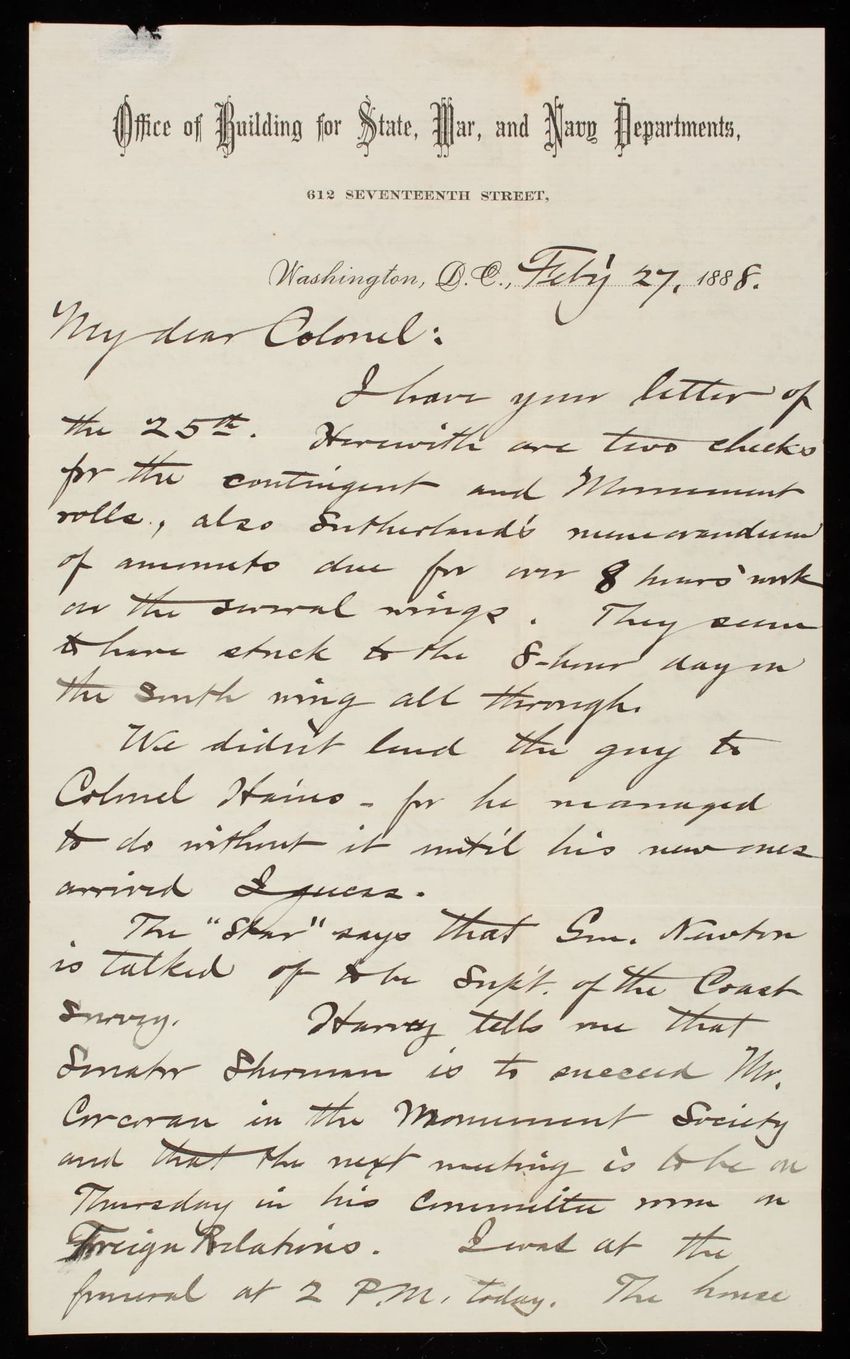 Office of Building for State, War, and Navy Departments,
612 SEVENTEENTH STREET,
Washington, D.C., Feb'y 27, 1888.
My dear Colonel:
I have your letter of
the 25th. Herewith are two checks
for the contingent and Monument
rolls, also Sutherland's memorandum
of amounts due for over 8 hours' work
on the several wings. They seem
to have stuck to the 8-hour day on
the south wing all through.
We didn't lend the guy to
Colonel Hains - for he managed
to do without it until his new ones
arrived I guess.
The "Star" says that Gen. Newton
is talked of to be Sup't. of the Coast
Survey. Harvey tells me that
Senator Sherman is to succeed Mr.
Corcoran in the Monument Society
and that the next meeting is to be on
Thursday in his committee room on
Foreign Relations. I was at the
funeral at 2 P.M. today. The house